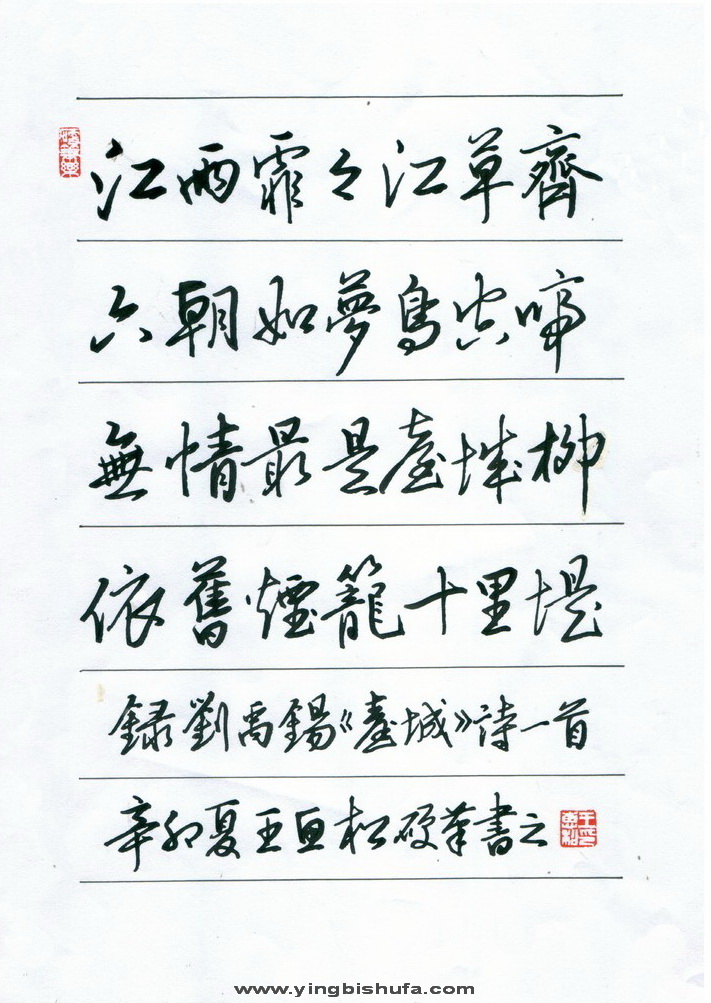 江雨霏々江草齊
六朝如夢鳥空啼
無情最是臺城柳
依舊煙籠十里堤
錄劉禹錫《臺城》詩一首
辛卯夏王松硬筆書之
www.yingbishufa.com